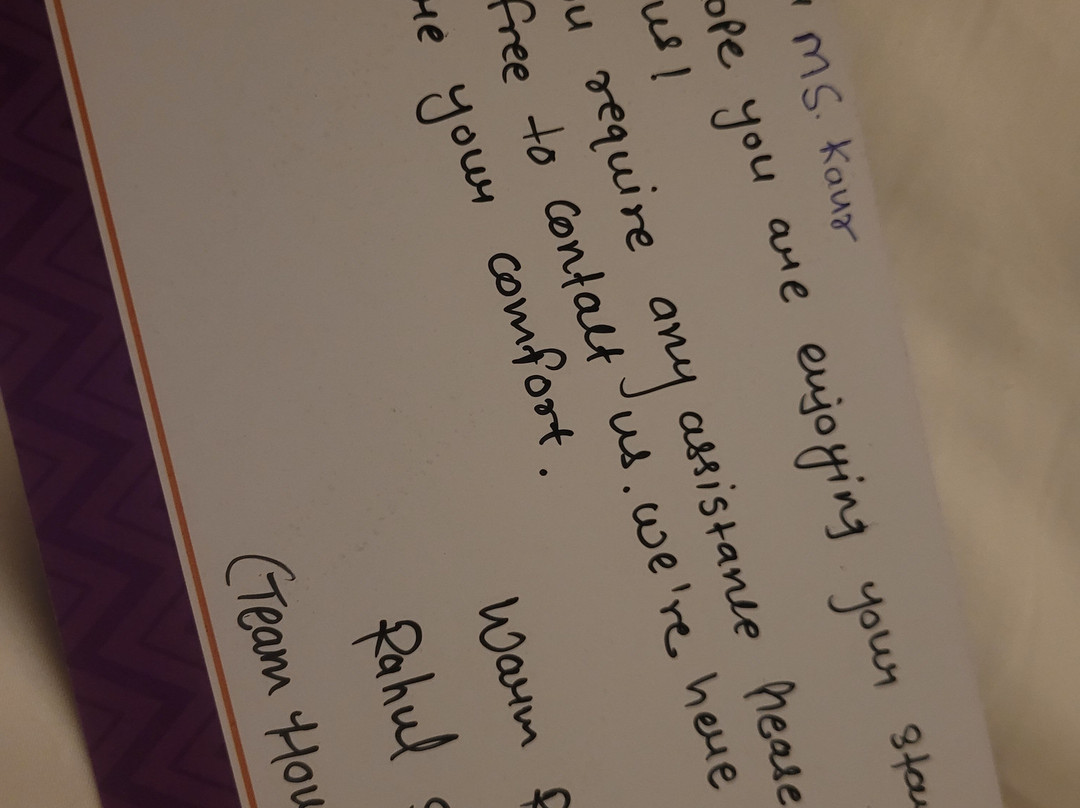 MS. Kaur
you are enjoying your
us!
require any assistance Please
free to contact us. We're here
your comfort.
Warm
Rahul
(Team